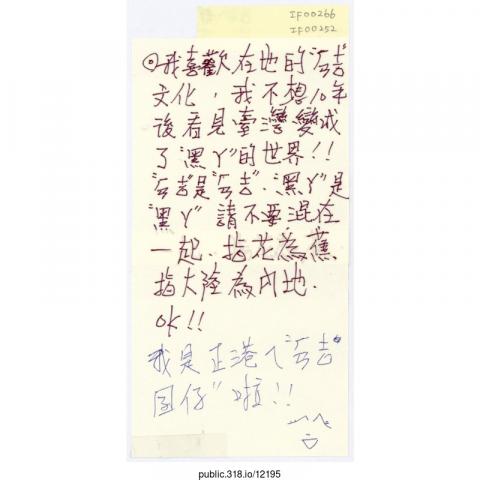 IF00266
IF00252
◎我喜歡在地的
文化，我不想10年
後看見臺灣變成
了"黑ㄚ"的世界!!
是 "黑ㄚ"是
"黑ㄚ" 請不要混在
一起. 指花為蕉
指大陸為內地.
OK!!
我是正港ㄟ
囝仔"啦!!
public.318.io/12195